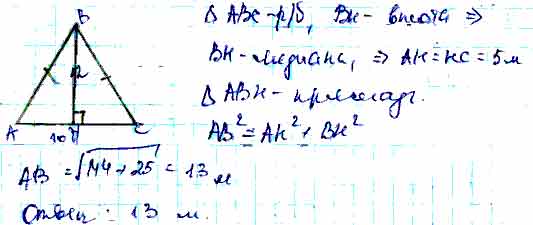 B
12
A 10 H C
Δ ABC - р/б, BH - высота ⇒
BH - медиана, ⇒ AH = HC = 5 м
Δ ABH - прямоуг.
AB² = AH² + BH²
AB = √144 + 25 = 13 м
Ответ: 13 м.